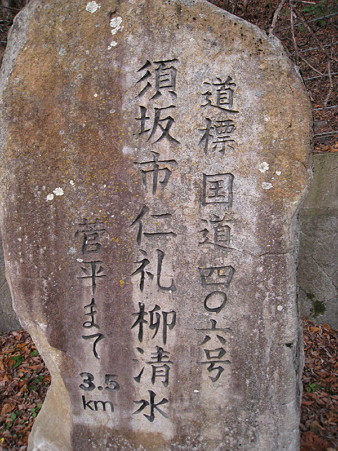 道標 国道四〇六号
須坂市仁礼柳清水
菅平まで 3.5 km